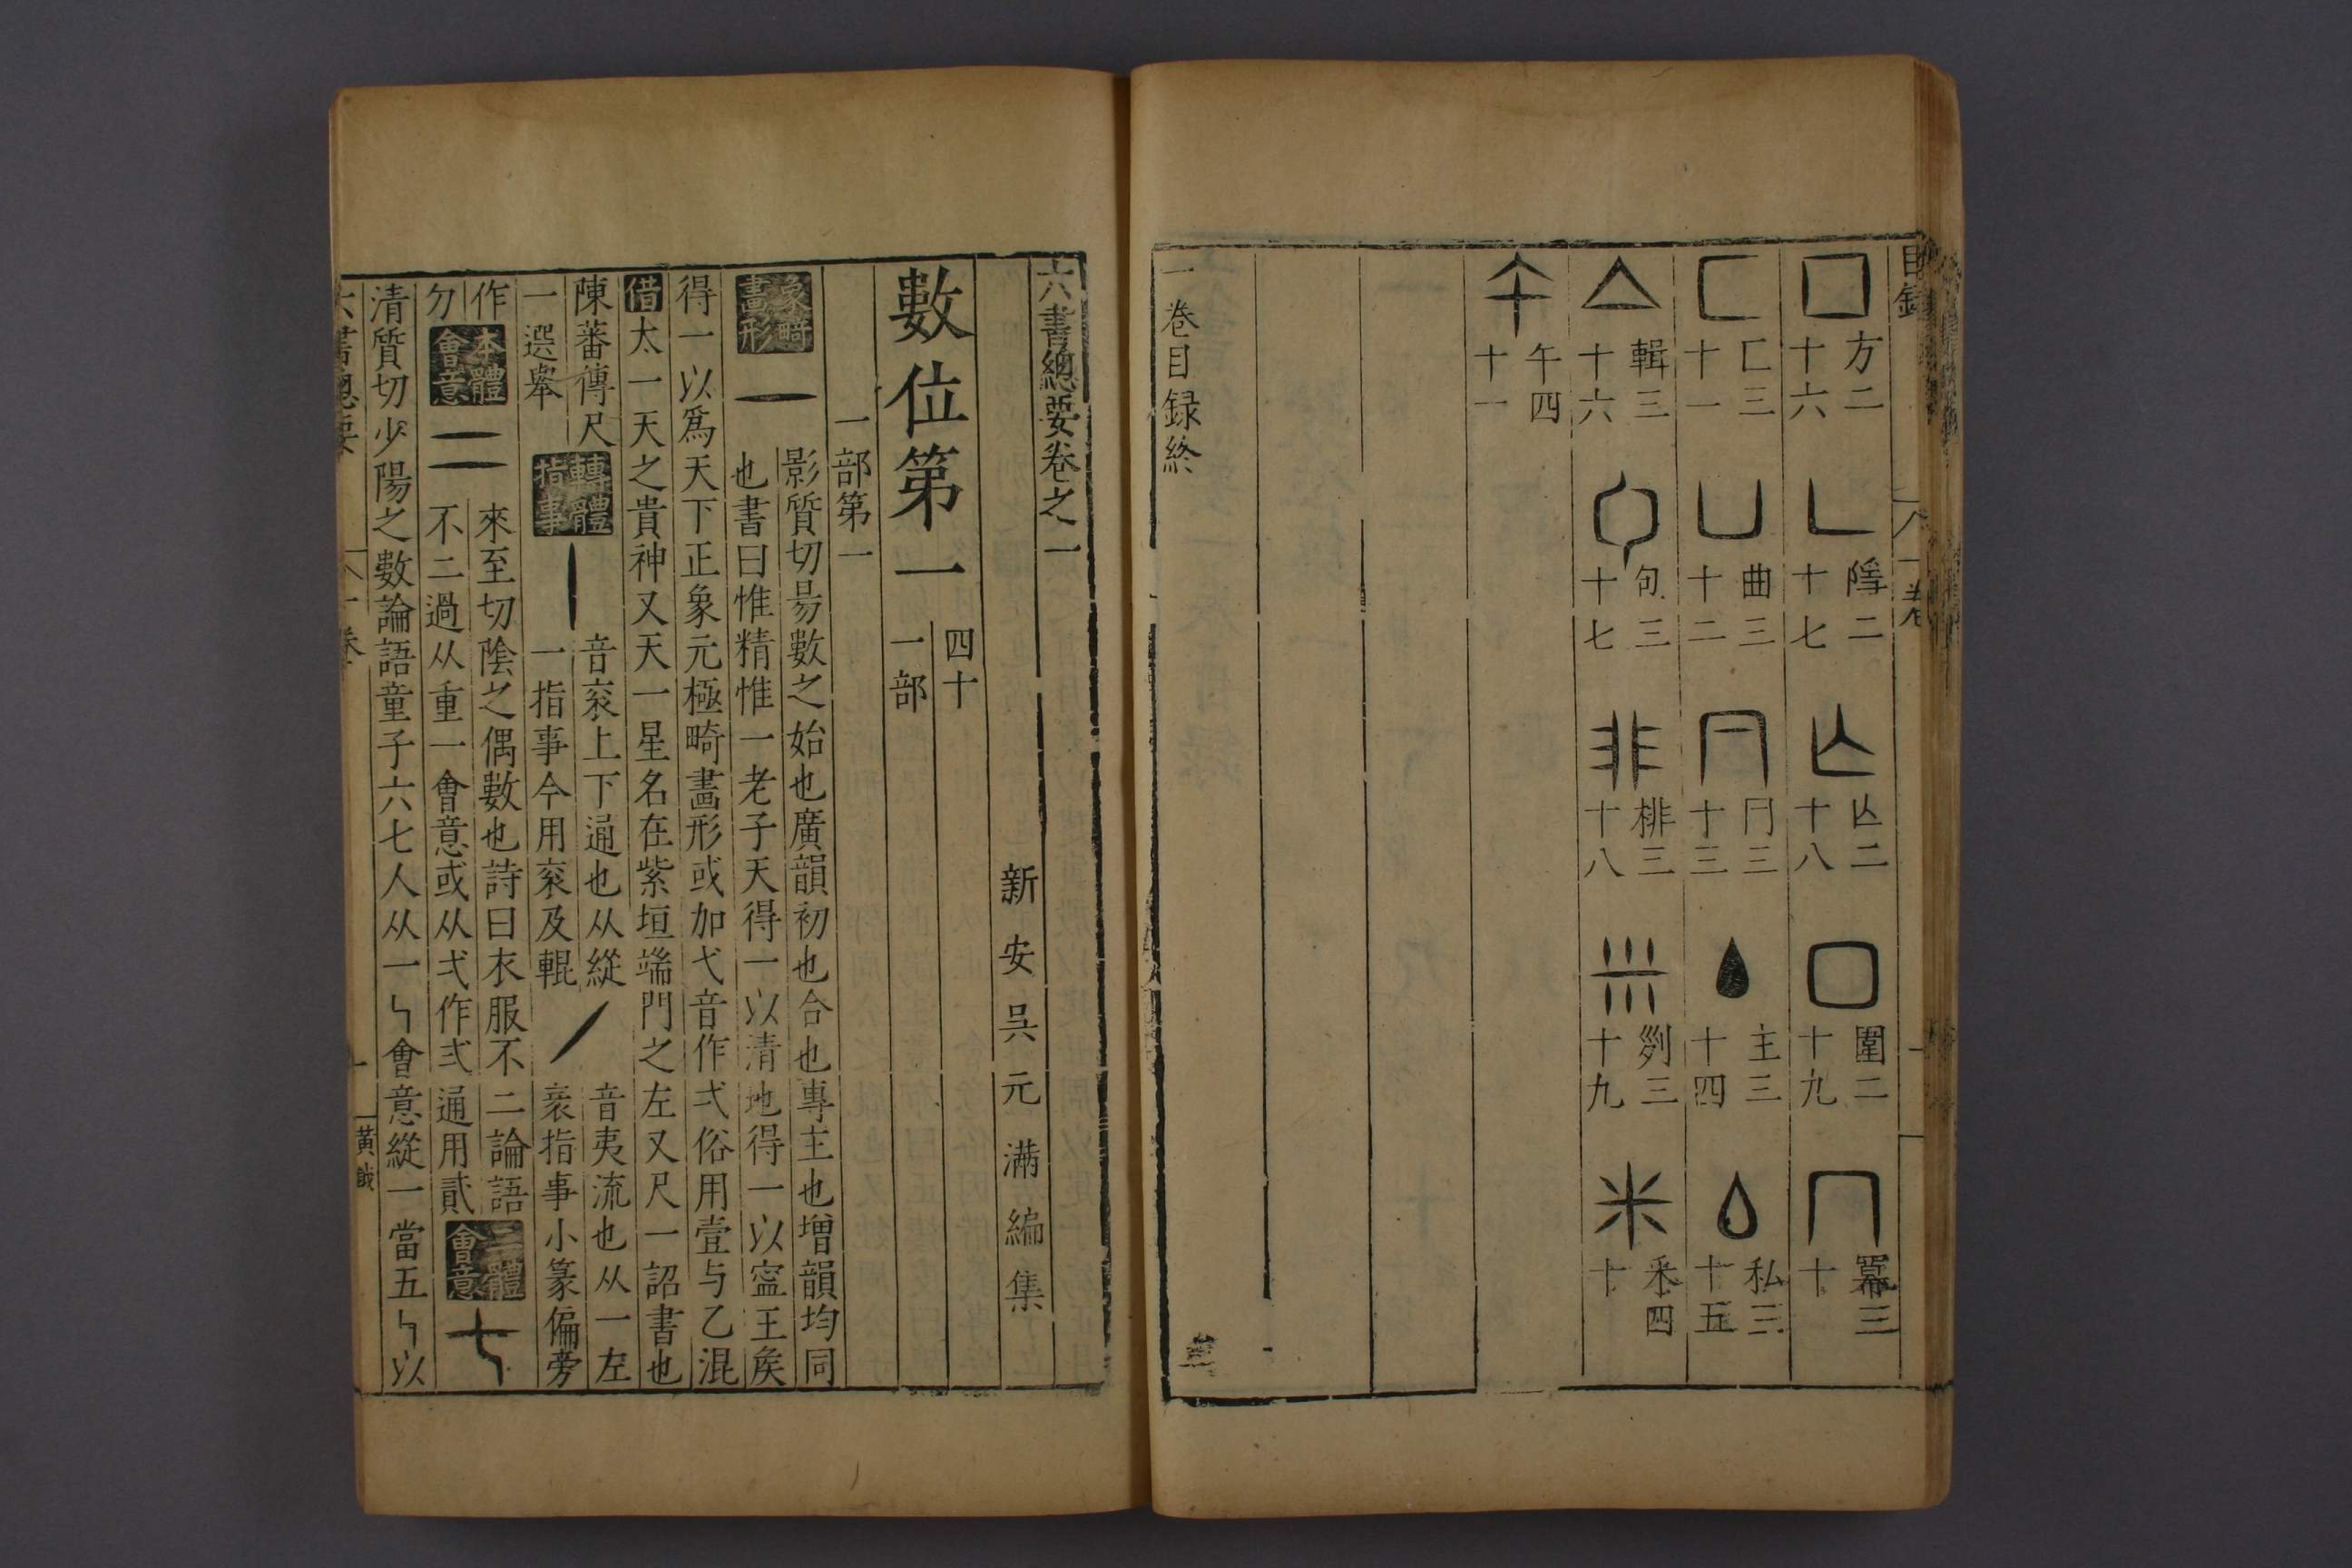 目錄 一卷
方二十六 隱二十七 𠃊二十八 圍二十九 冪三十
匚三十一 曲三十二 冃三十三 主三十四 私三十五
輯三十六 句三十七 排三十八 剡三十九 釆四十
午四十一
一卷目録終
六書總要卷之一
新安吳元滿編集
數位第一 四十一部
一部第一
象畸畫形 一 影質切昜數之始也廣韻初也合也專主也增韻均同
也書曰惟精惟一老子天得一以清地得一以寍王矦
得一以爲天下正象元極畸畫形或加弋音作弌俗用壹与乙混
借太一天之貴神又天一星名在紫垣端門之左又尺一詔書也
陳蕃傳尺一選舉 轉體指事 丨 音衮上下通也从縱一指事今用衮及輥 丿 音夷流也从一左衺指事小篆偏旁
作勿 本體會意 二 來至切陰之偶數也詩曰衣服不二論語
不二過从重一會意或从弍作弍通用貳 二體會意 七
清質切少陽之數論語童子六七人从一𠃑會意縱一當五𠃑以
六書總要 一卷 一 黃誠